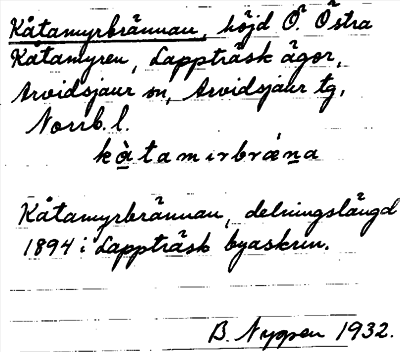 Kåtamyrbrännan, höjd Ö. Östra
Kåtamyren, Lappträsk ägor,
Arvidsjaur sn, Arvidsjaur tg,
Norrb. l.
kàtamırbrána
Kåtamyrbrännan, delningslängd
1894 i Lappträsk byaskrin.
B. Nygren 1932.